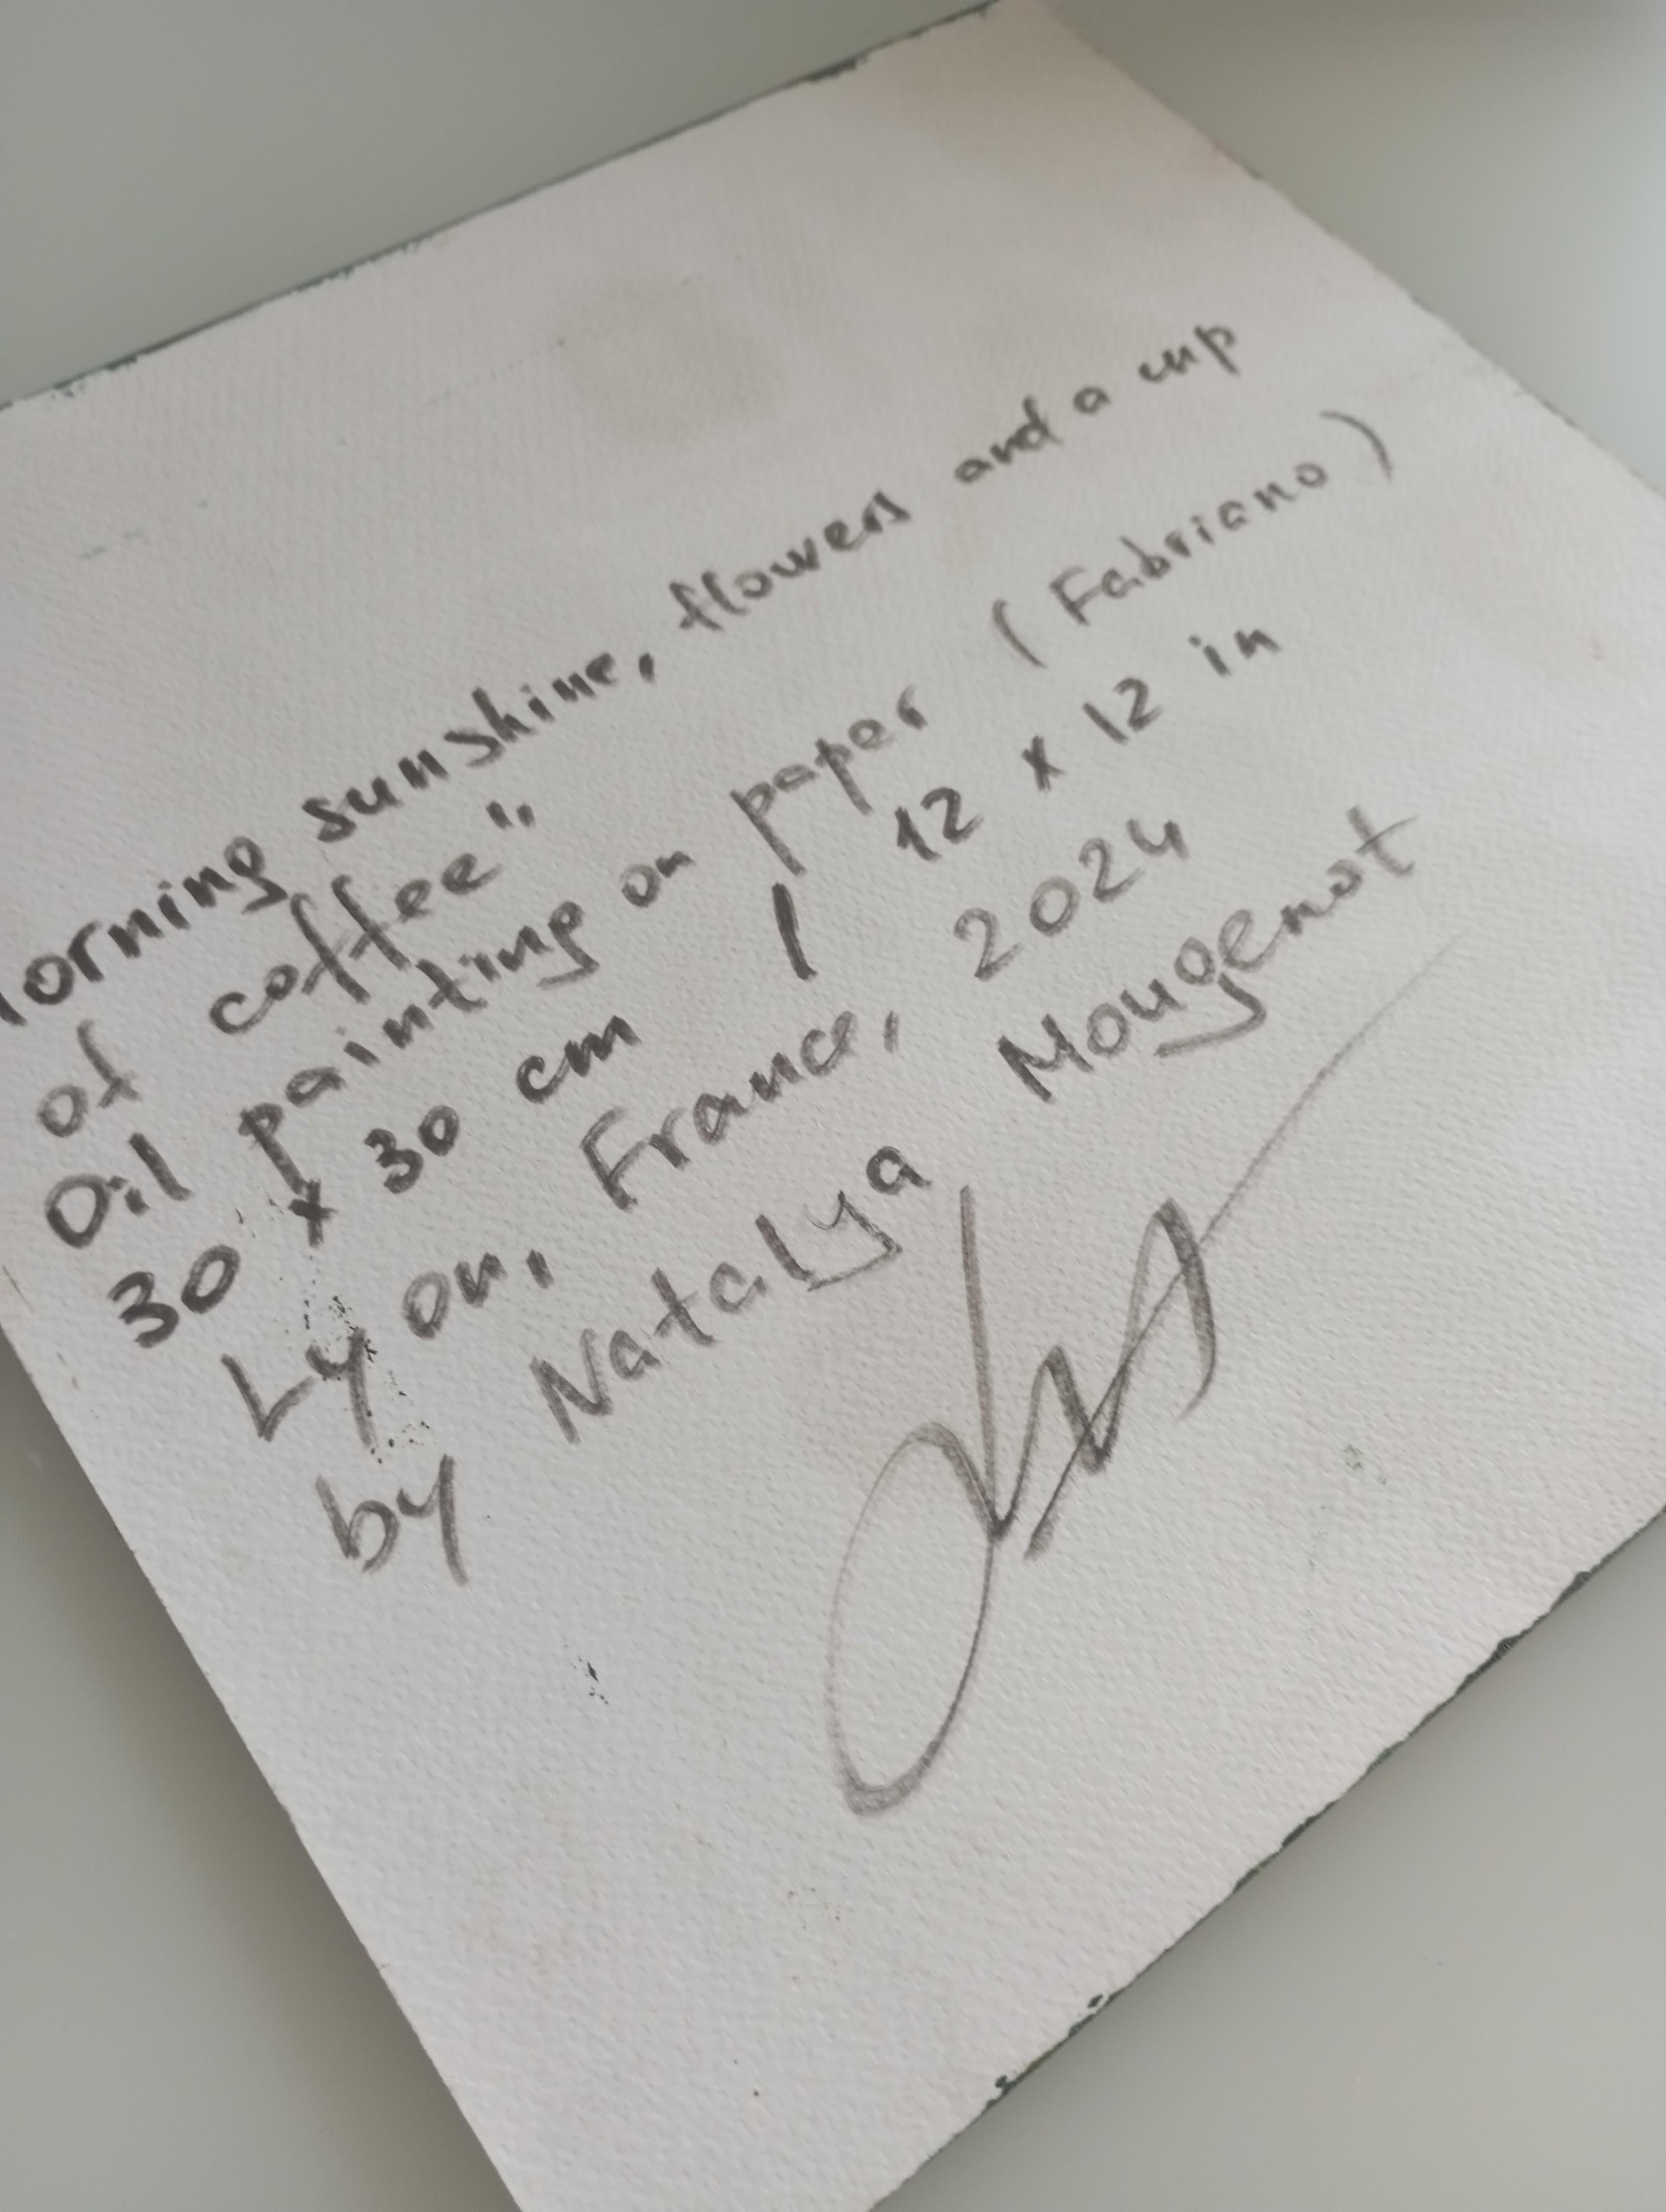 orning sunshine, flowers and a cup
of coffee"
Oil painting on paper (Fabriano)
30 x 30 cm / 12 x 12 in
Lyon, France, 2024
by Natalya Mougenot